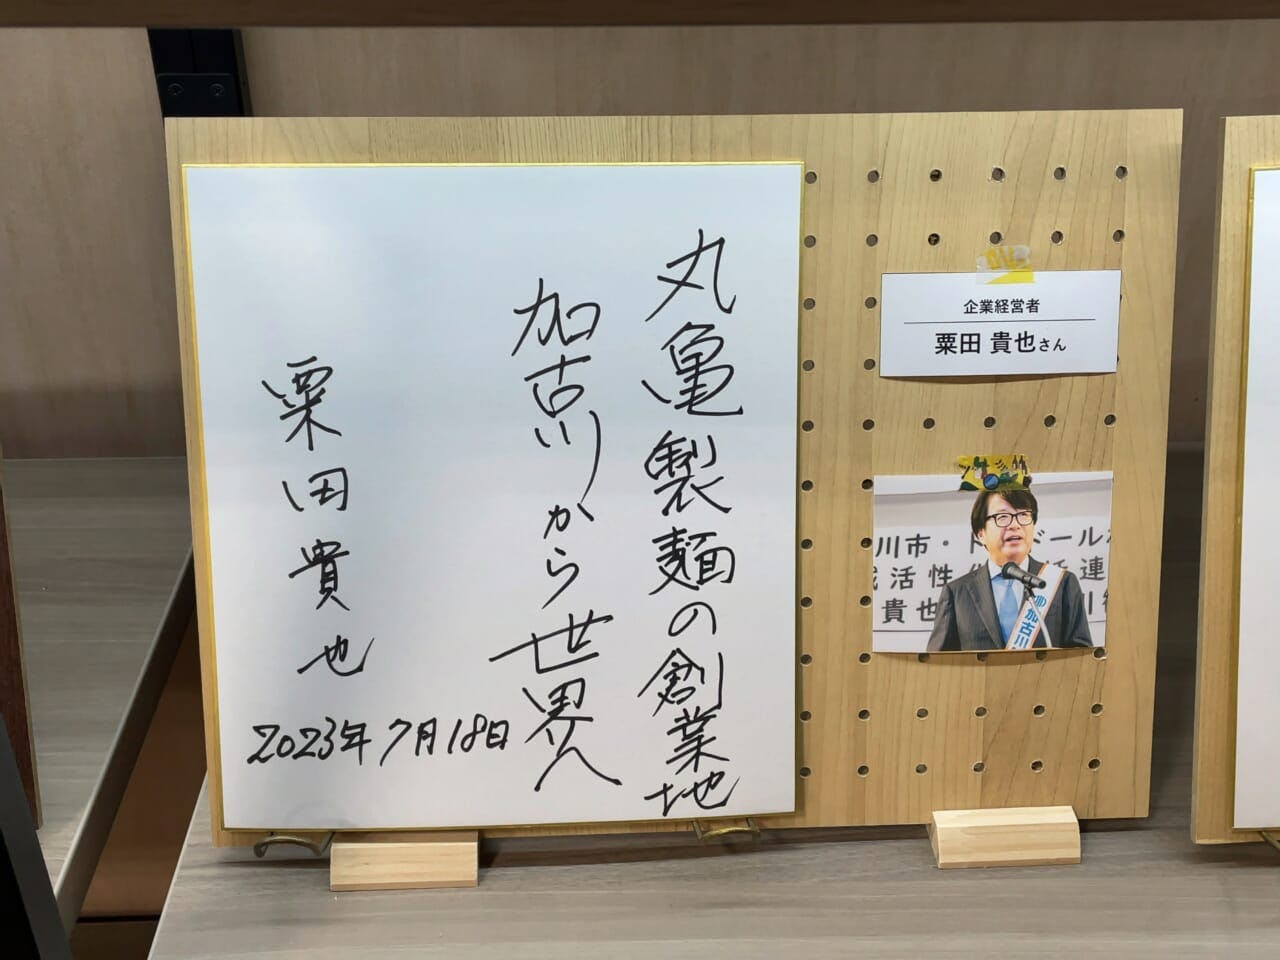 丸亀製麺の創業地
加古川から世界へ
粟田貴也
2023年7月18日
企業経営者
粟田 貴也さん
川市・ト
ドール
活性
連
貴也
川
加古川